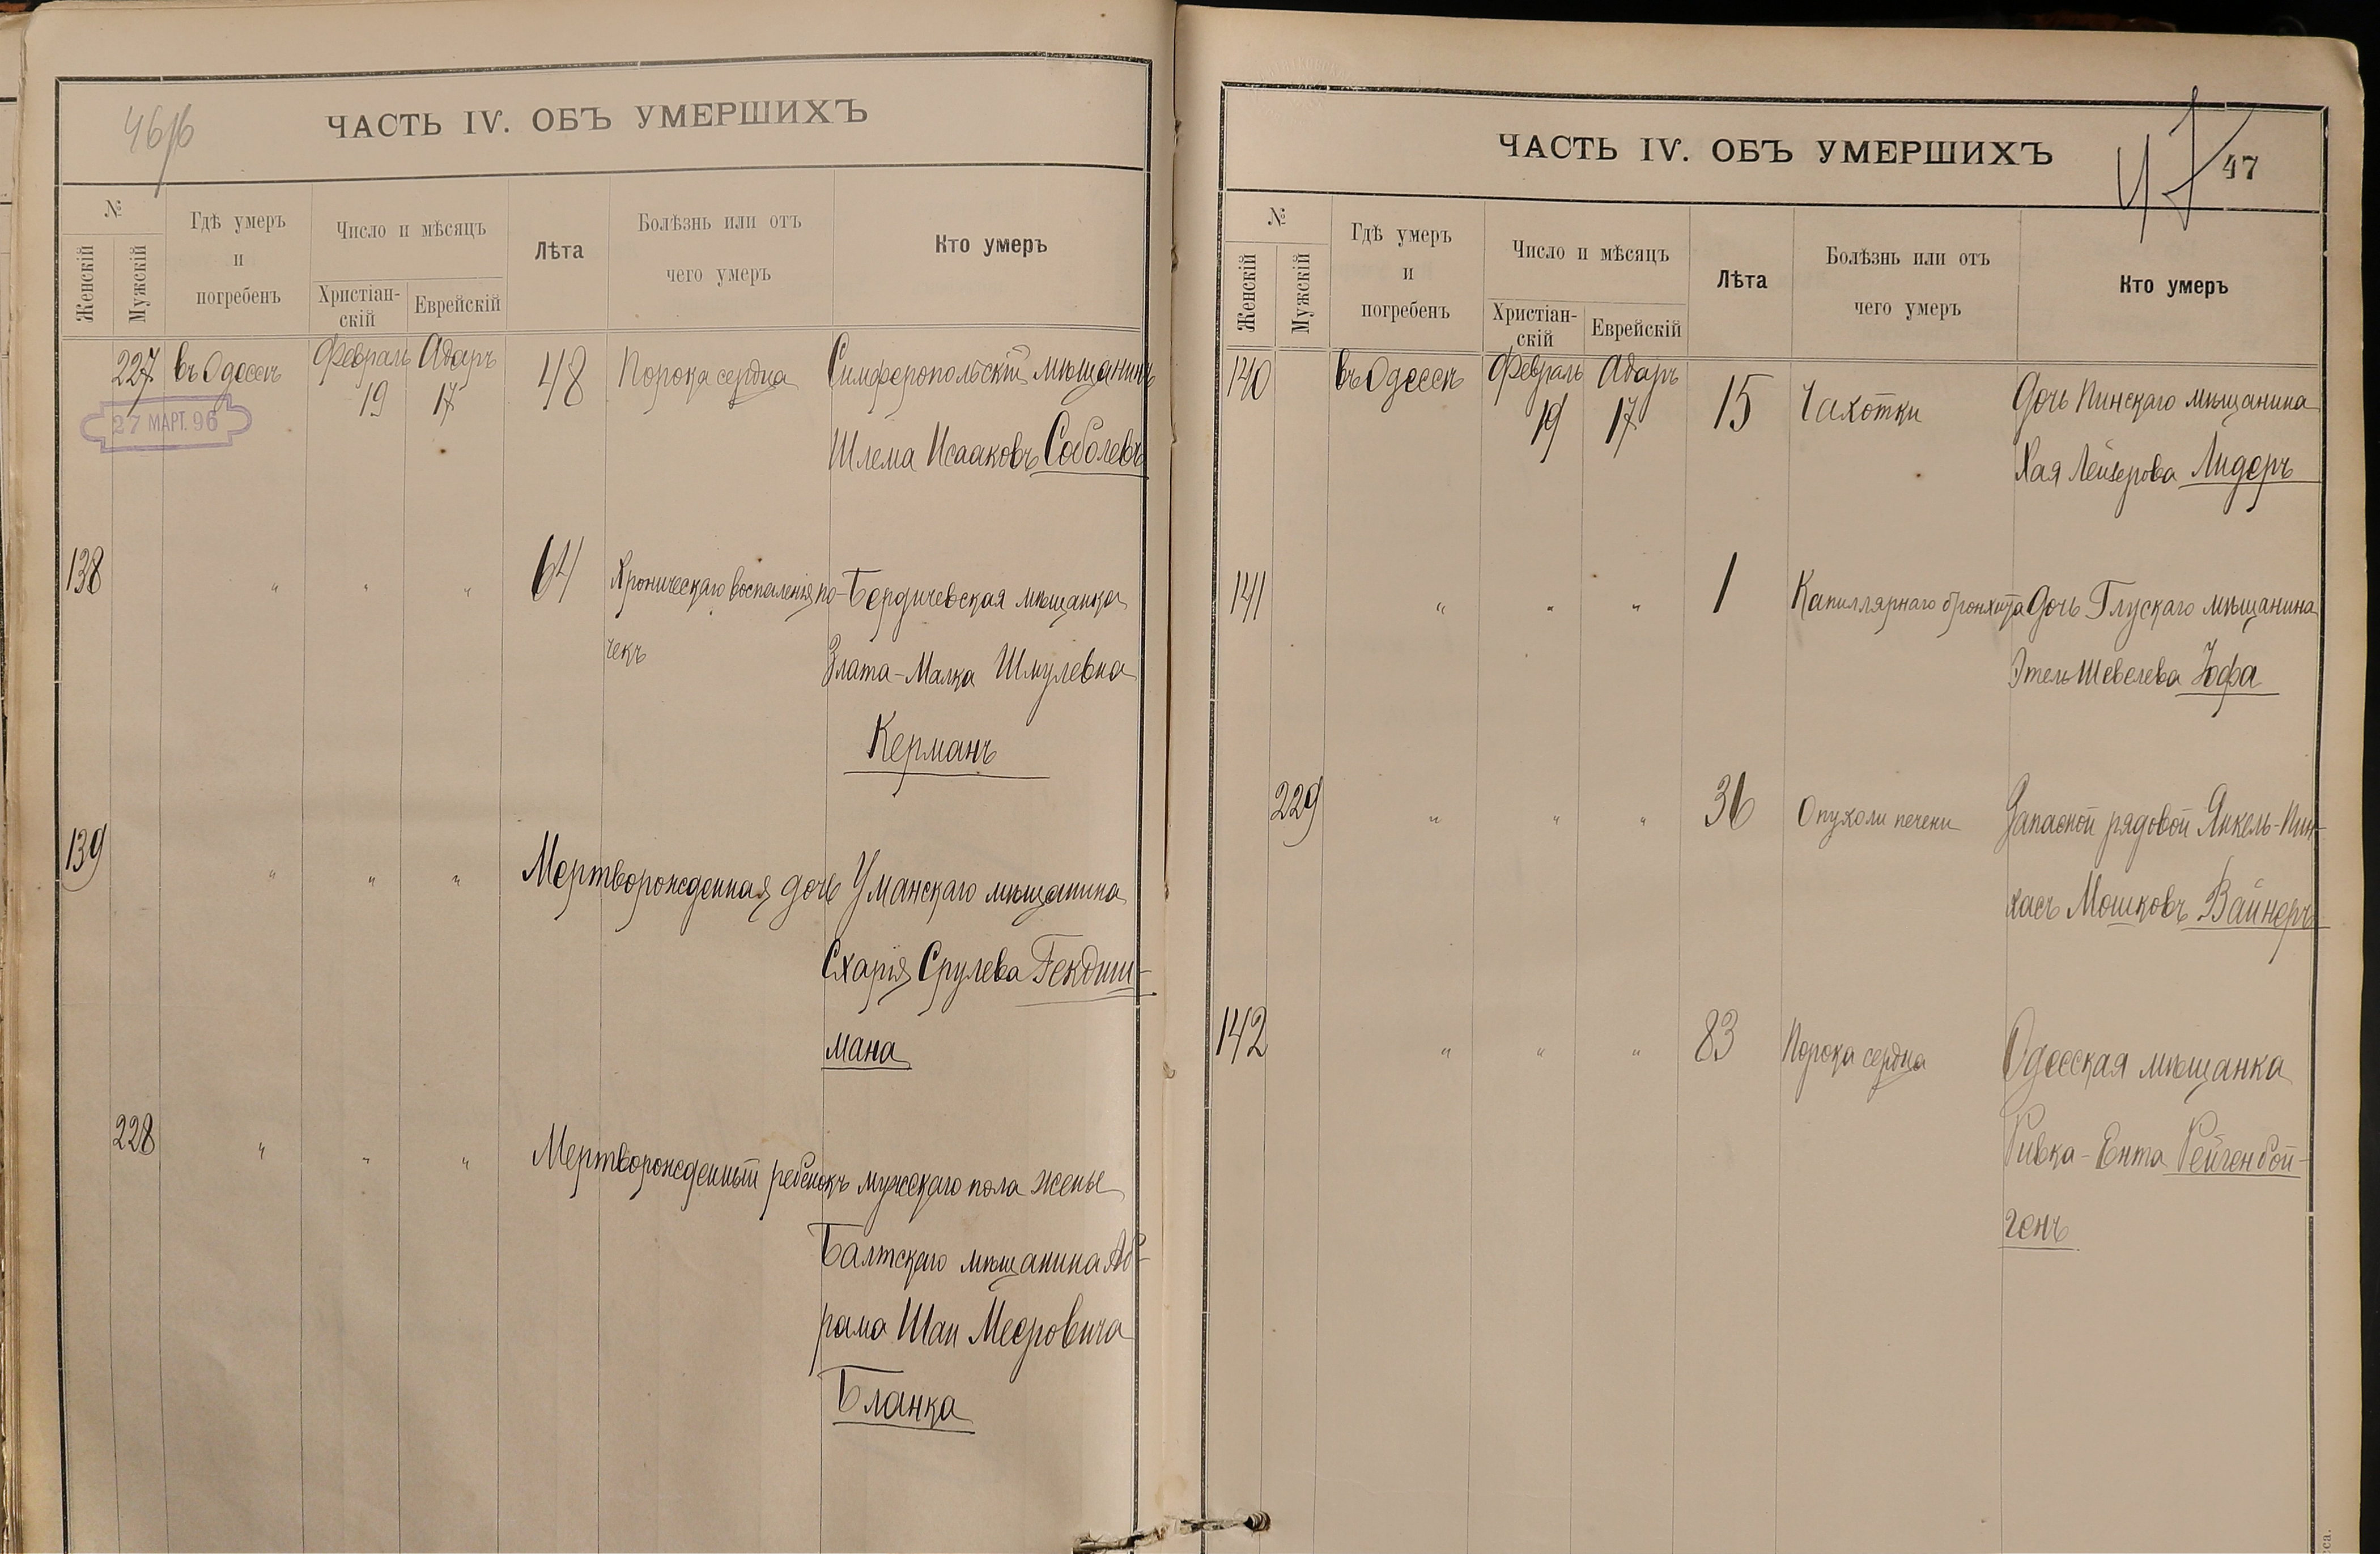 46/б
ЧАСТЬ IV. ОБЪ УМЕРШИХЪ
№
Женскій
Мужскій
Гдѣ умеръ
и
погребенъ
Число и мѣсяцъ
Христіан-
скій
Еврейскій
Лѣта
Болѣзнь или отъ
чего умеръ
Кто умеръ
227 въ Одессѣ Февраль Адаръ 48 Порока сердца Симферопольскій мѣщанинъ
19 17
27 МАРТ. 96
Шлема Исааковъ Соболевъ
138 " " " 64 Хроническаго воспаленія по- Бердичевская мѣщанка
чекъ Злата-Малка Шмулевна
Керманъ
139 " " " Мертворожденная дочь Уманскаго мѣщанина
Схарія Срулева Гекдиш-
мана
228 " " " Мертворожденный ребенокъ мужскаго пола жены
Балтскаго мѣщанина Аб-
рама Шаи Мееровича
Бланка
ЧАСТЬ IV. ОБЪ УМЕРШИХЪ
47
47
№
Женскій
Мужскій
Гдѣ умеръ
и
погребенъ
Число и мѣсяцъ
Христіан-
скій
Еврейскій
Лѣта
Болѣзнь или отъ
чего умеръ
Кто умеръ
140 въ Одессѣ Февраль Адаръ 15 Чахотки Дочь Пинскаго мѣщанина
19 17
Хая Лейзерова Лидеръ
141 " " " 1 Капиллярнаго бронхита Дочь Глускаго мѣщанина
Этель Шевелева Іофа
229 " " " 36 Опухоли печени Запасной рядовой Янкель-Пин-
хасъ Мошковъ Вайнеръ
142 " " " 83 Порока сердца Одесская мѣщанка
Ривка-Ента Рейгенбой-
генъ